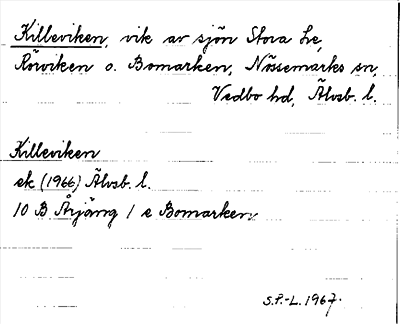 Killeviken, vik av sjön Stora Le,
Rörviken o. Bomarken, Nössemarks sn,
Vedbo hd, Älvsb. l.
Killeviken
ek (1966) Älvsb. l.
10 B Årjäng 1 e Bomarken
S.P.-L. 1967.